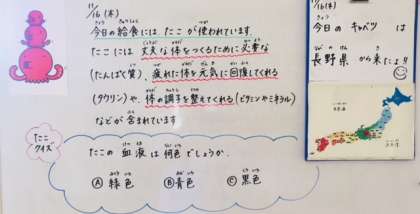 11/16(木)
今日の給食には たこが使われています
たこには 丈夫な体をつくるために必要な
(たんぱく質)、疲れた体を元気に回復してくれる
(タウリン)や、体の調子を整えてくれる(ビタミンやミネラル)
などが 含まれています
たこクイズ
たこの 血液は何色でしょうか.
Ⓐ 緑色 Ⓑ 青色 Ⓒ 黒色
11/16(木)
今日の キャベツ は
長野県から来たよ!!